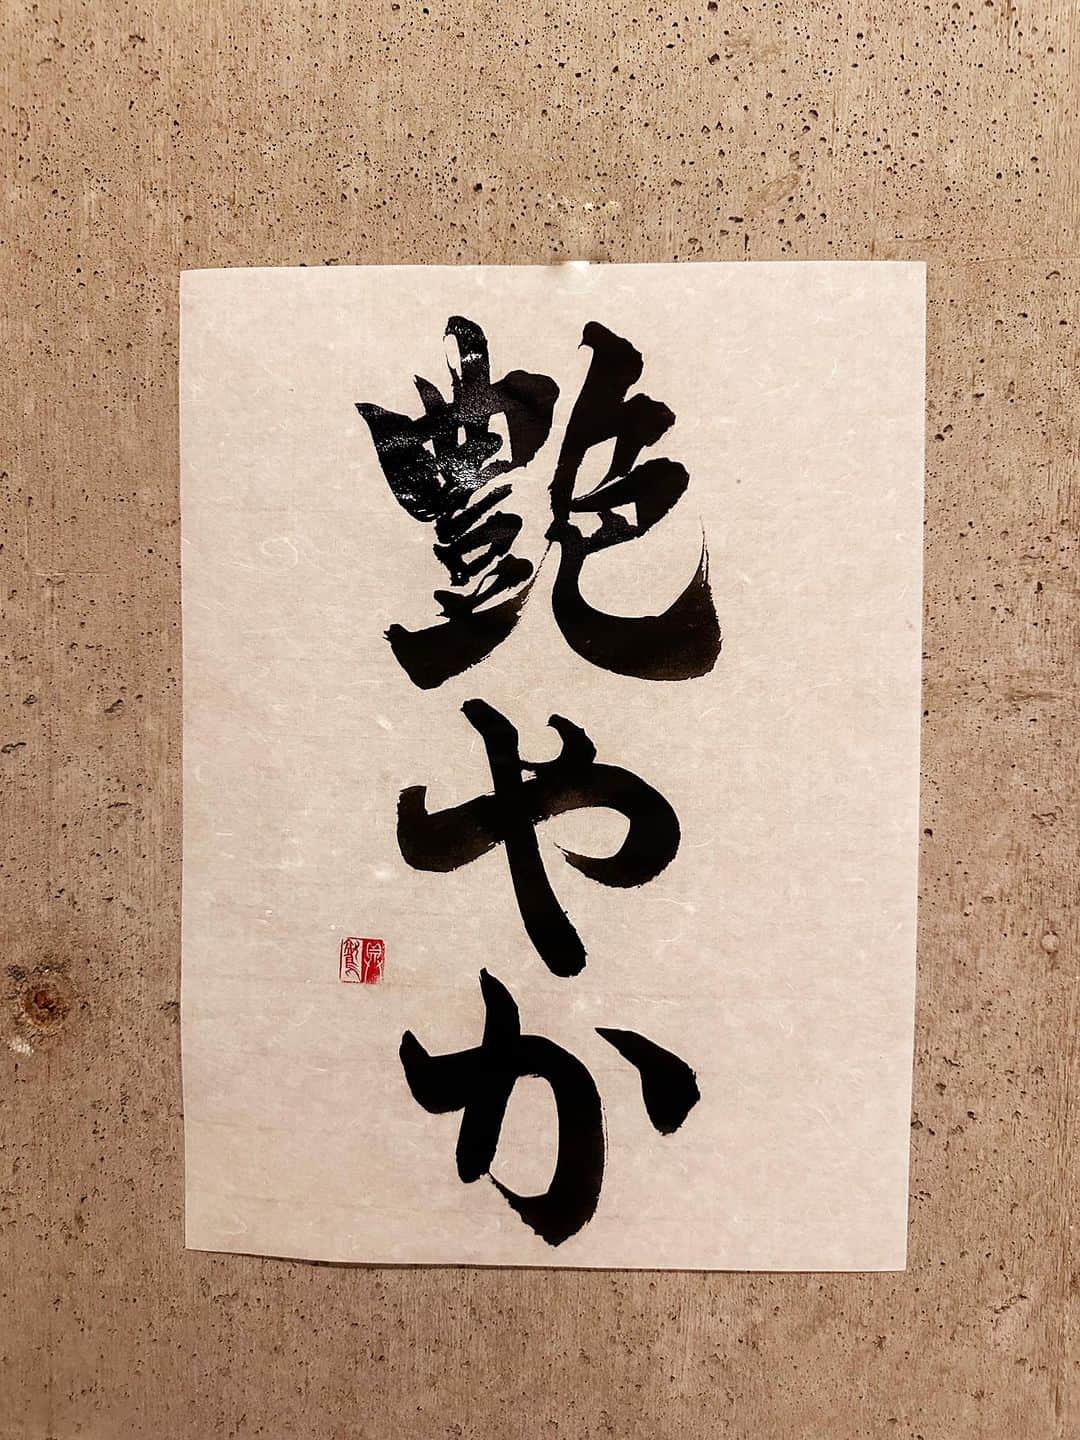 艶やか